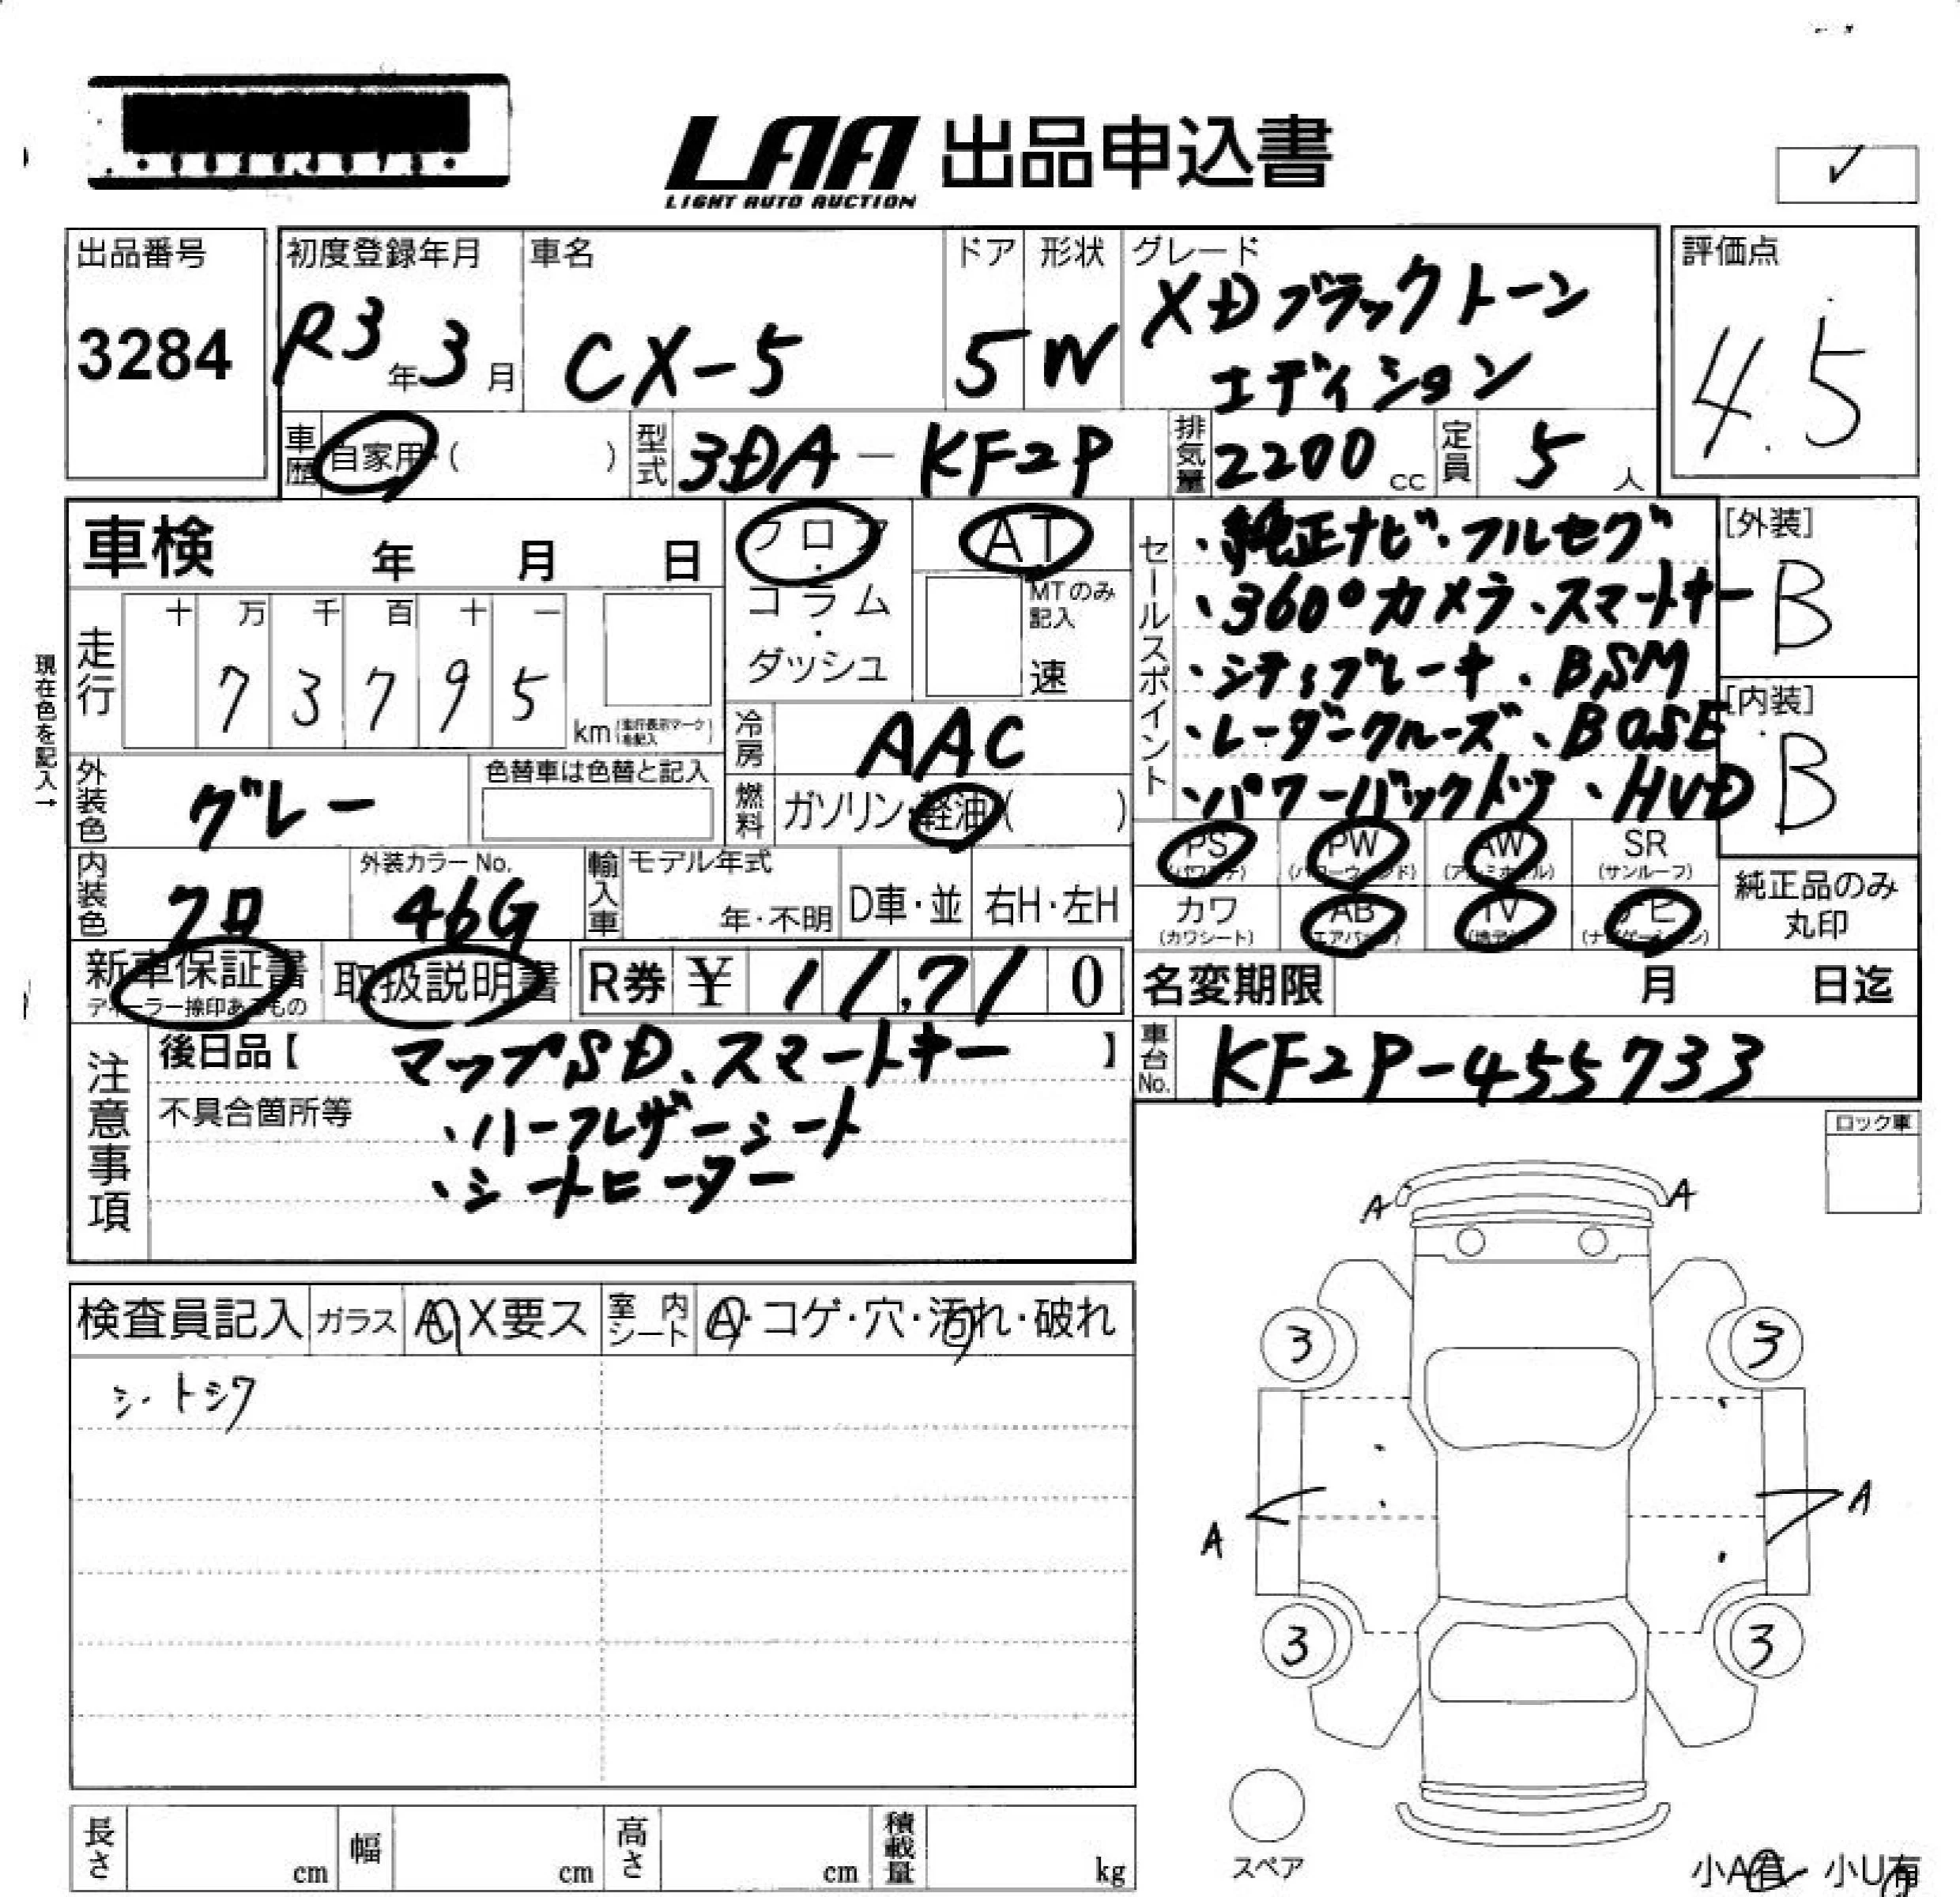 LAA 出品申込書
LIGHT AUTO AUCTION
出品番号
3284
初度登録年月
R3年3月
車名
CX-5
ドア
5
形状
W
グレード
XDブラックトーン
エディション
評価点
4.5
車歴
自家用・( )
型式
3DA-KF2P
排気量
2200cc
定員
5人
車検 年 月 日
現在色を記入→
走行
十 万 千 百 十 一
7 3 7 9 5
km
フロア
・
コラム
・
ダッシュ
AT
MTのみ
記入
速
冷房
AAC
外装色
グレー
色替車は色替と記入
燃料
ガソリン・軽油( )
内装色
クロ
外装カラーNo.
46G
輸入車
モデル年式
年・不明
D車・並
右H・左H
セールスポイント
・純正ナビ・フルセグ
・360°カメラ・スマートキー
・シティブレーキ・BSM
・レーダークルーズ・BOSE
・パワーバックドア・HUD
[外装]
B
[内装]
B
PS
PW
AW
SR
(サンルーフ)
カワ
(カワシート)
AB
TV
ナビ
純正品のみ
丸印
新車保証書
ディーラー捺印あるもの
取扱説明書
R券 ¥ 11,710
名変期限 月 日迄
車台No.
KF2P-455733
注意事項
後日品【 マップSD、スマートキー 】
不具合箇所等
・ハーフレザーシート
・シートヒーター
ロック車
検査員記入
ガラス
A・X要ス
室内
シート
A・コゲ・穴・汚れ・破れ
シートシワ
A A
3 3
A A
3 3
スペア
小A有 小U有
長さ cm
幅 cm
高さ cm
積載量 kg